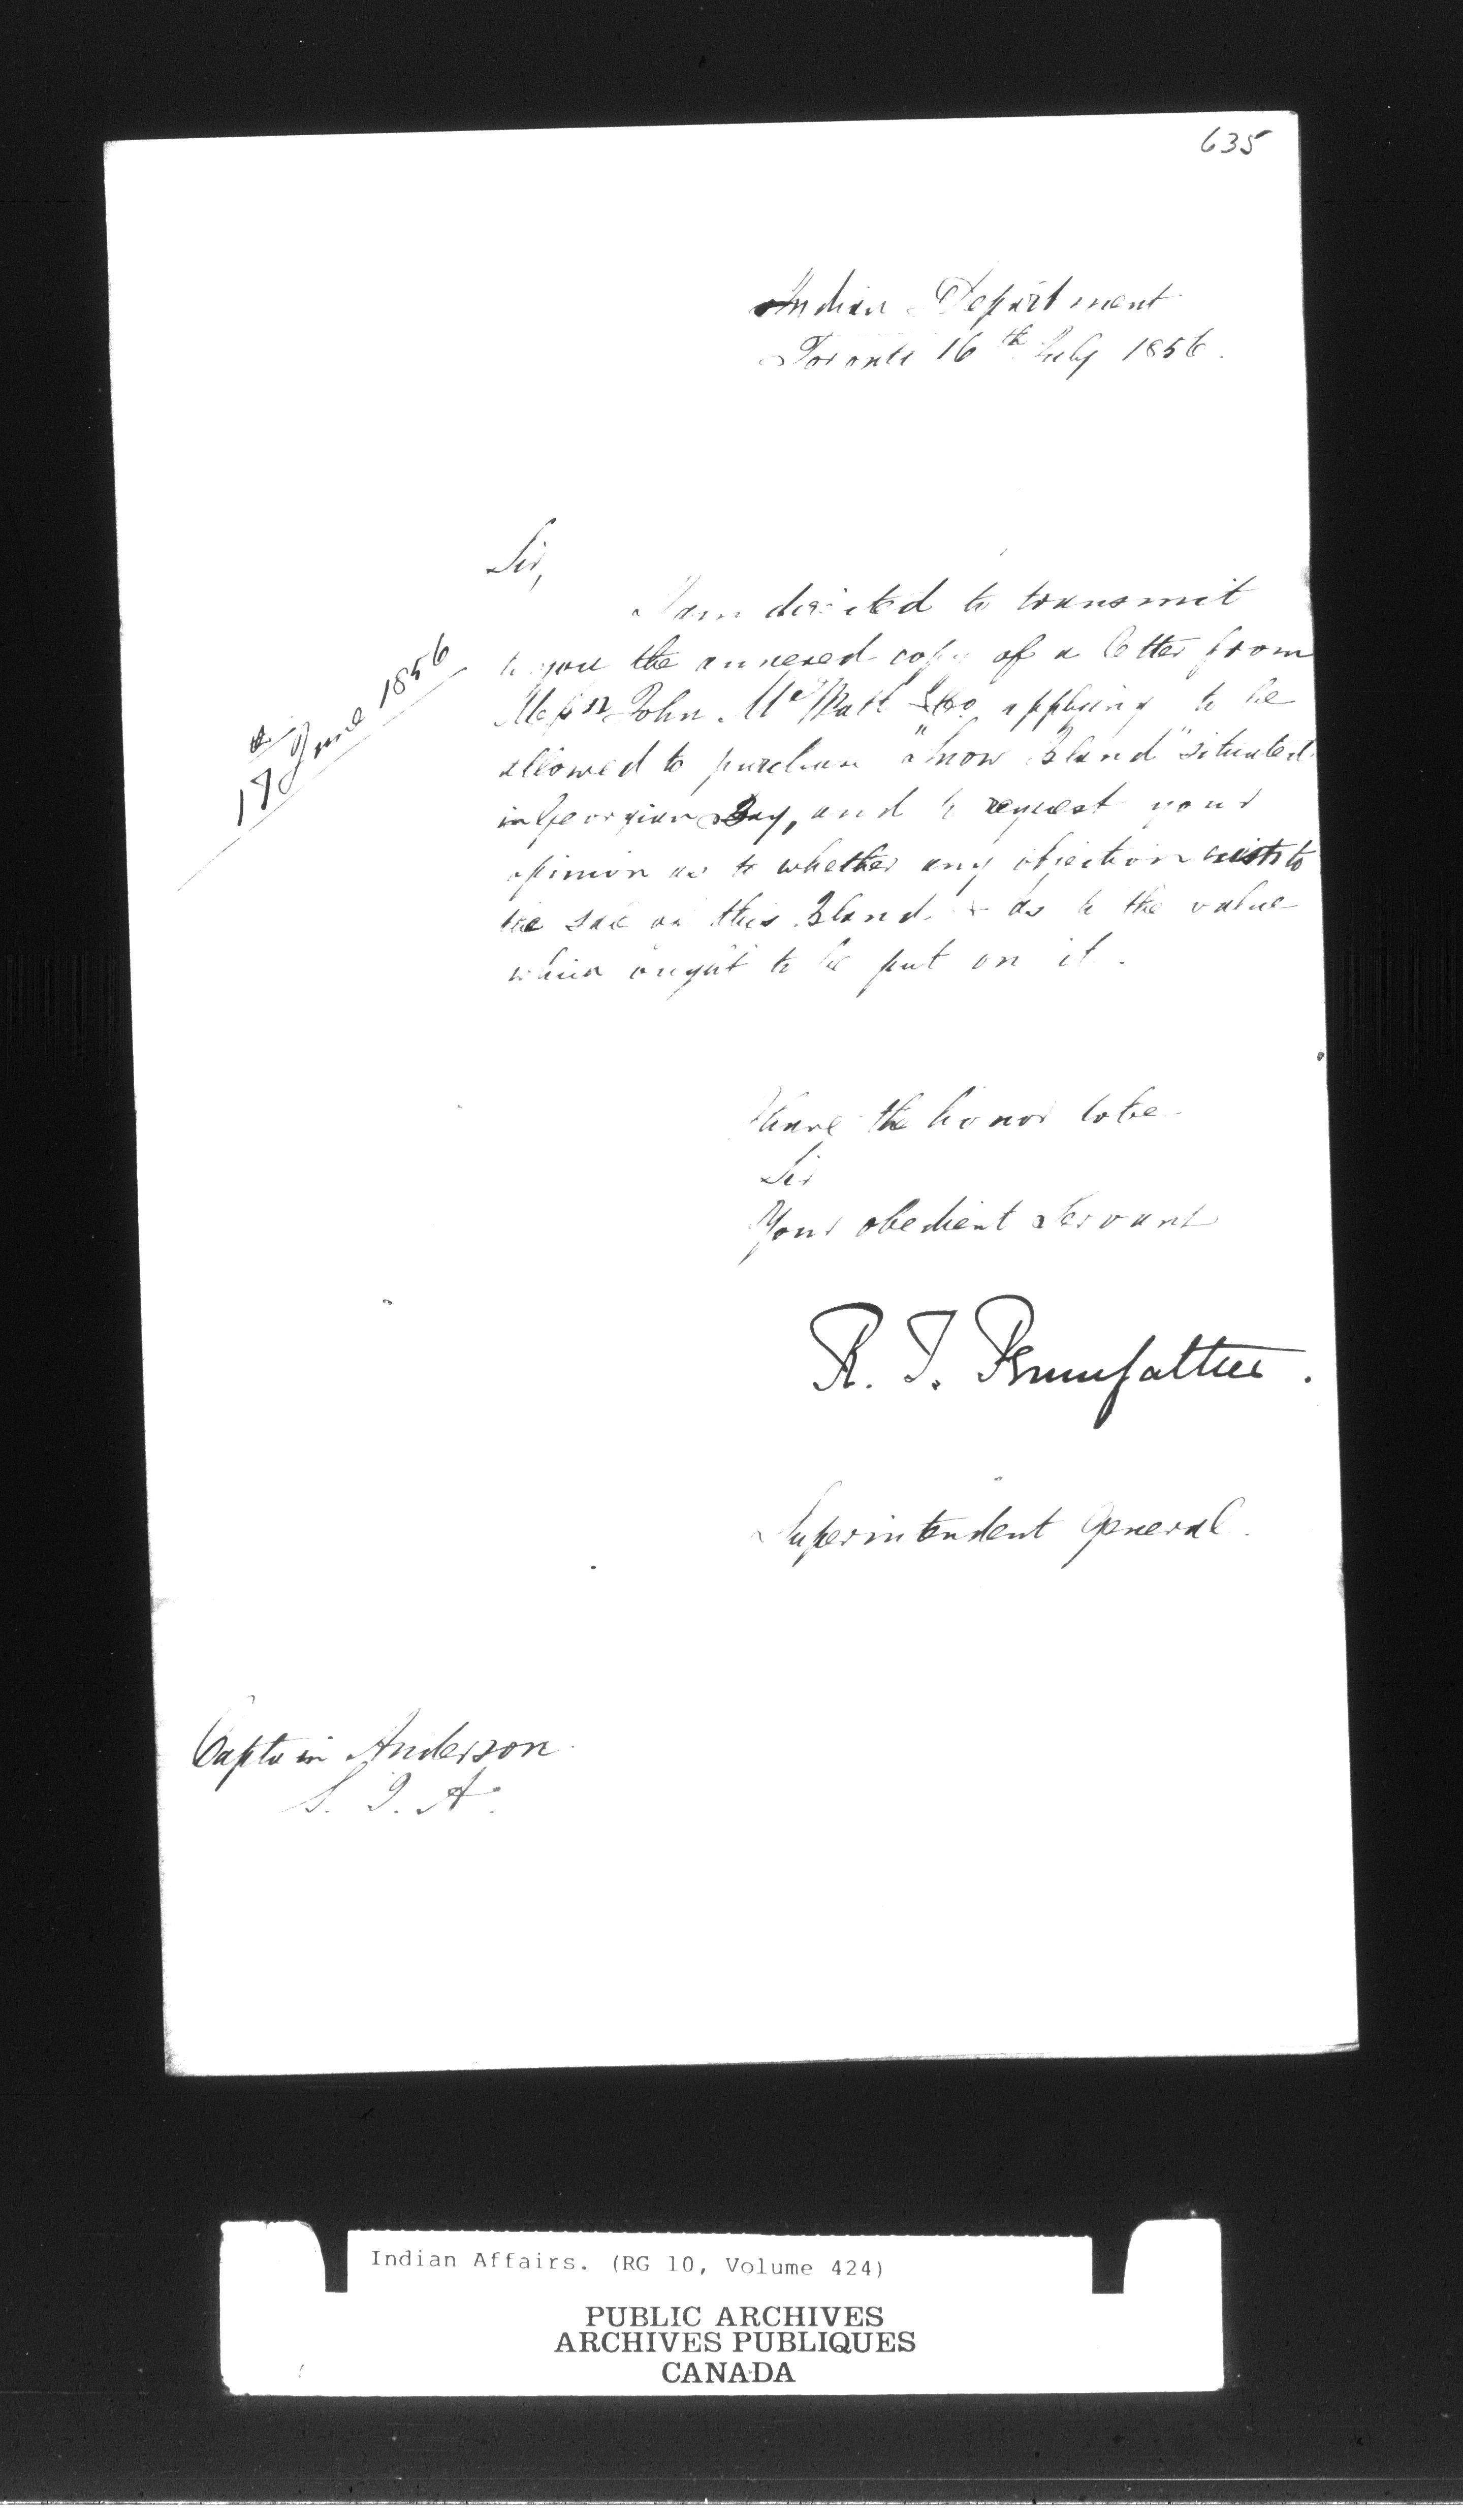 635
Indian Department
Toronto 16th July 1856.
Sir,
I am directed to transmit
to you the annexed copy of a letter from
17th June 1856
Messrs John & Co. applying to be
allowed to purchase "Snow Island" situated
in Georgian Bay, and to request your
opinion as to whether any objection exists to
the sale of this Island & as to the value
which ought to be put on it.
I have the honor to be
Sir
Your obedient Servant
R. T. Pennefather.
Superintendent General.
Captain Anderson
S. I. A.
Indian Affairs. (RG 10, Volume 424)
PUBLIC ARCHIVES
ARCHIVES PUBLIQUES
CANADA